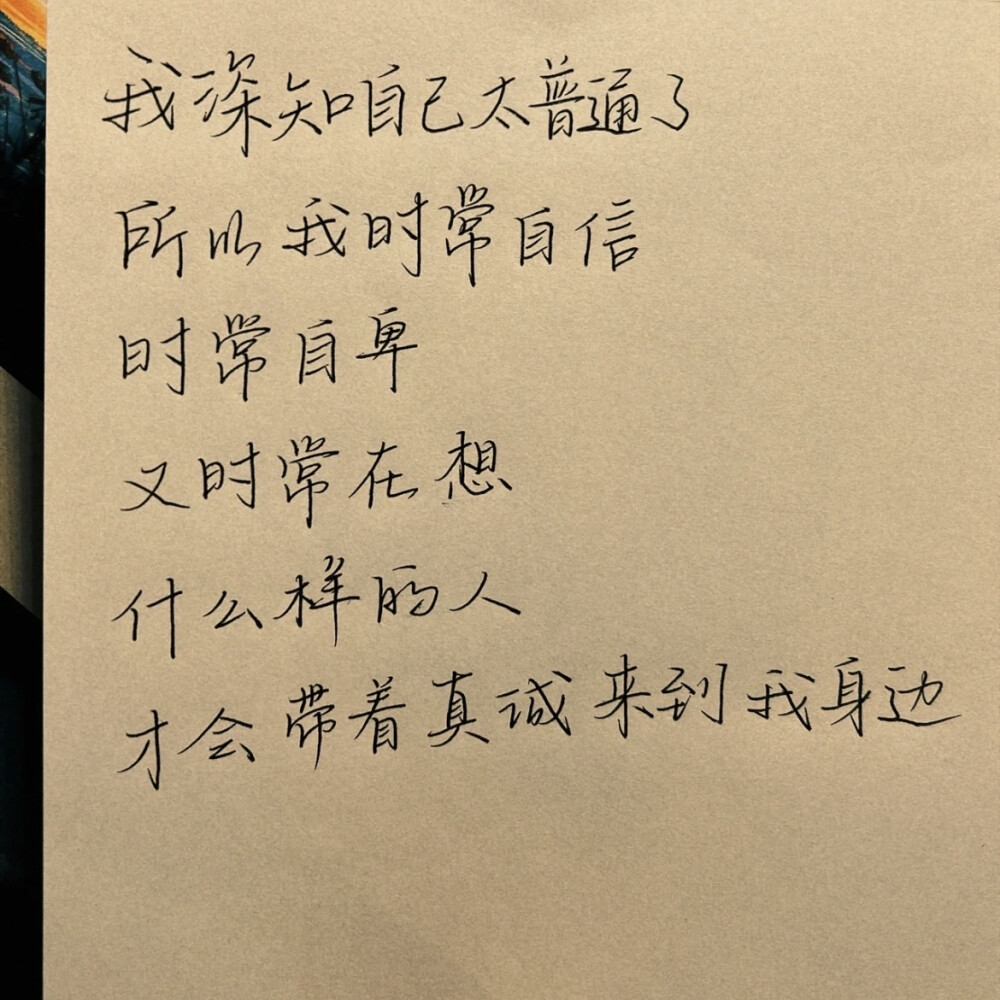 我深知自己太普通了
所以我时常自信
时常自卑
又时常在想
什么样的人
才会带着真诚来到我身边